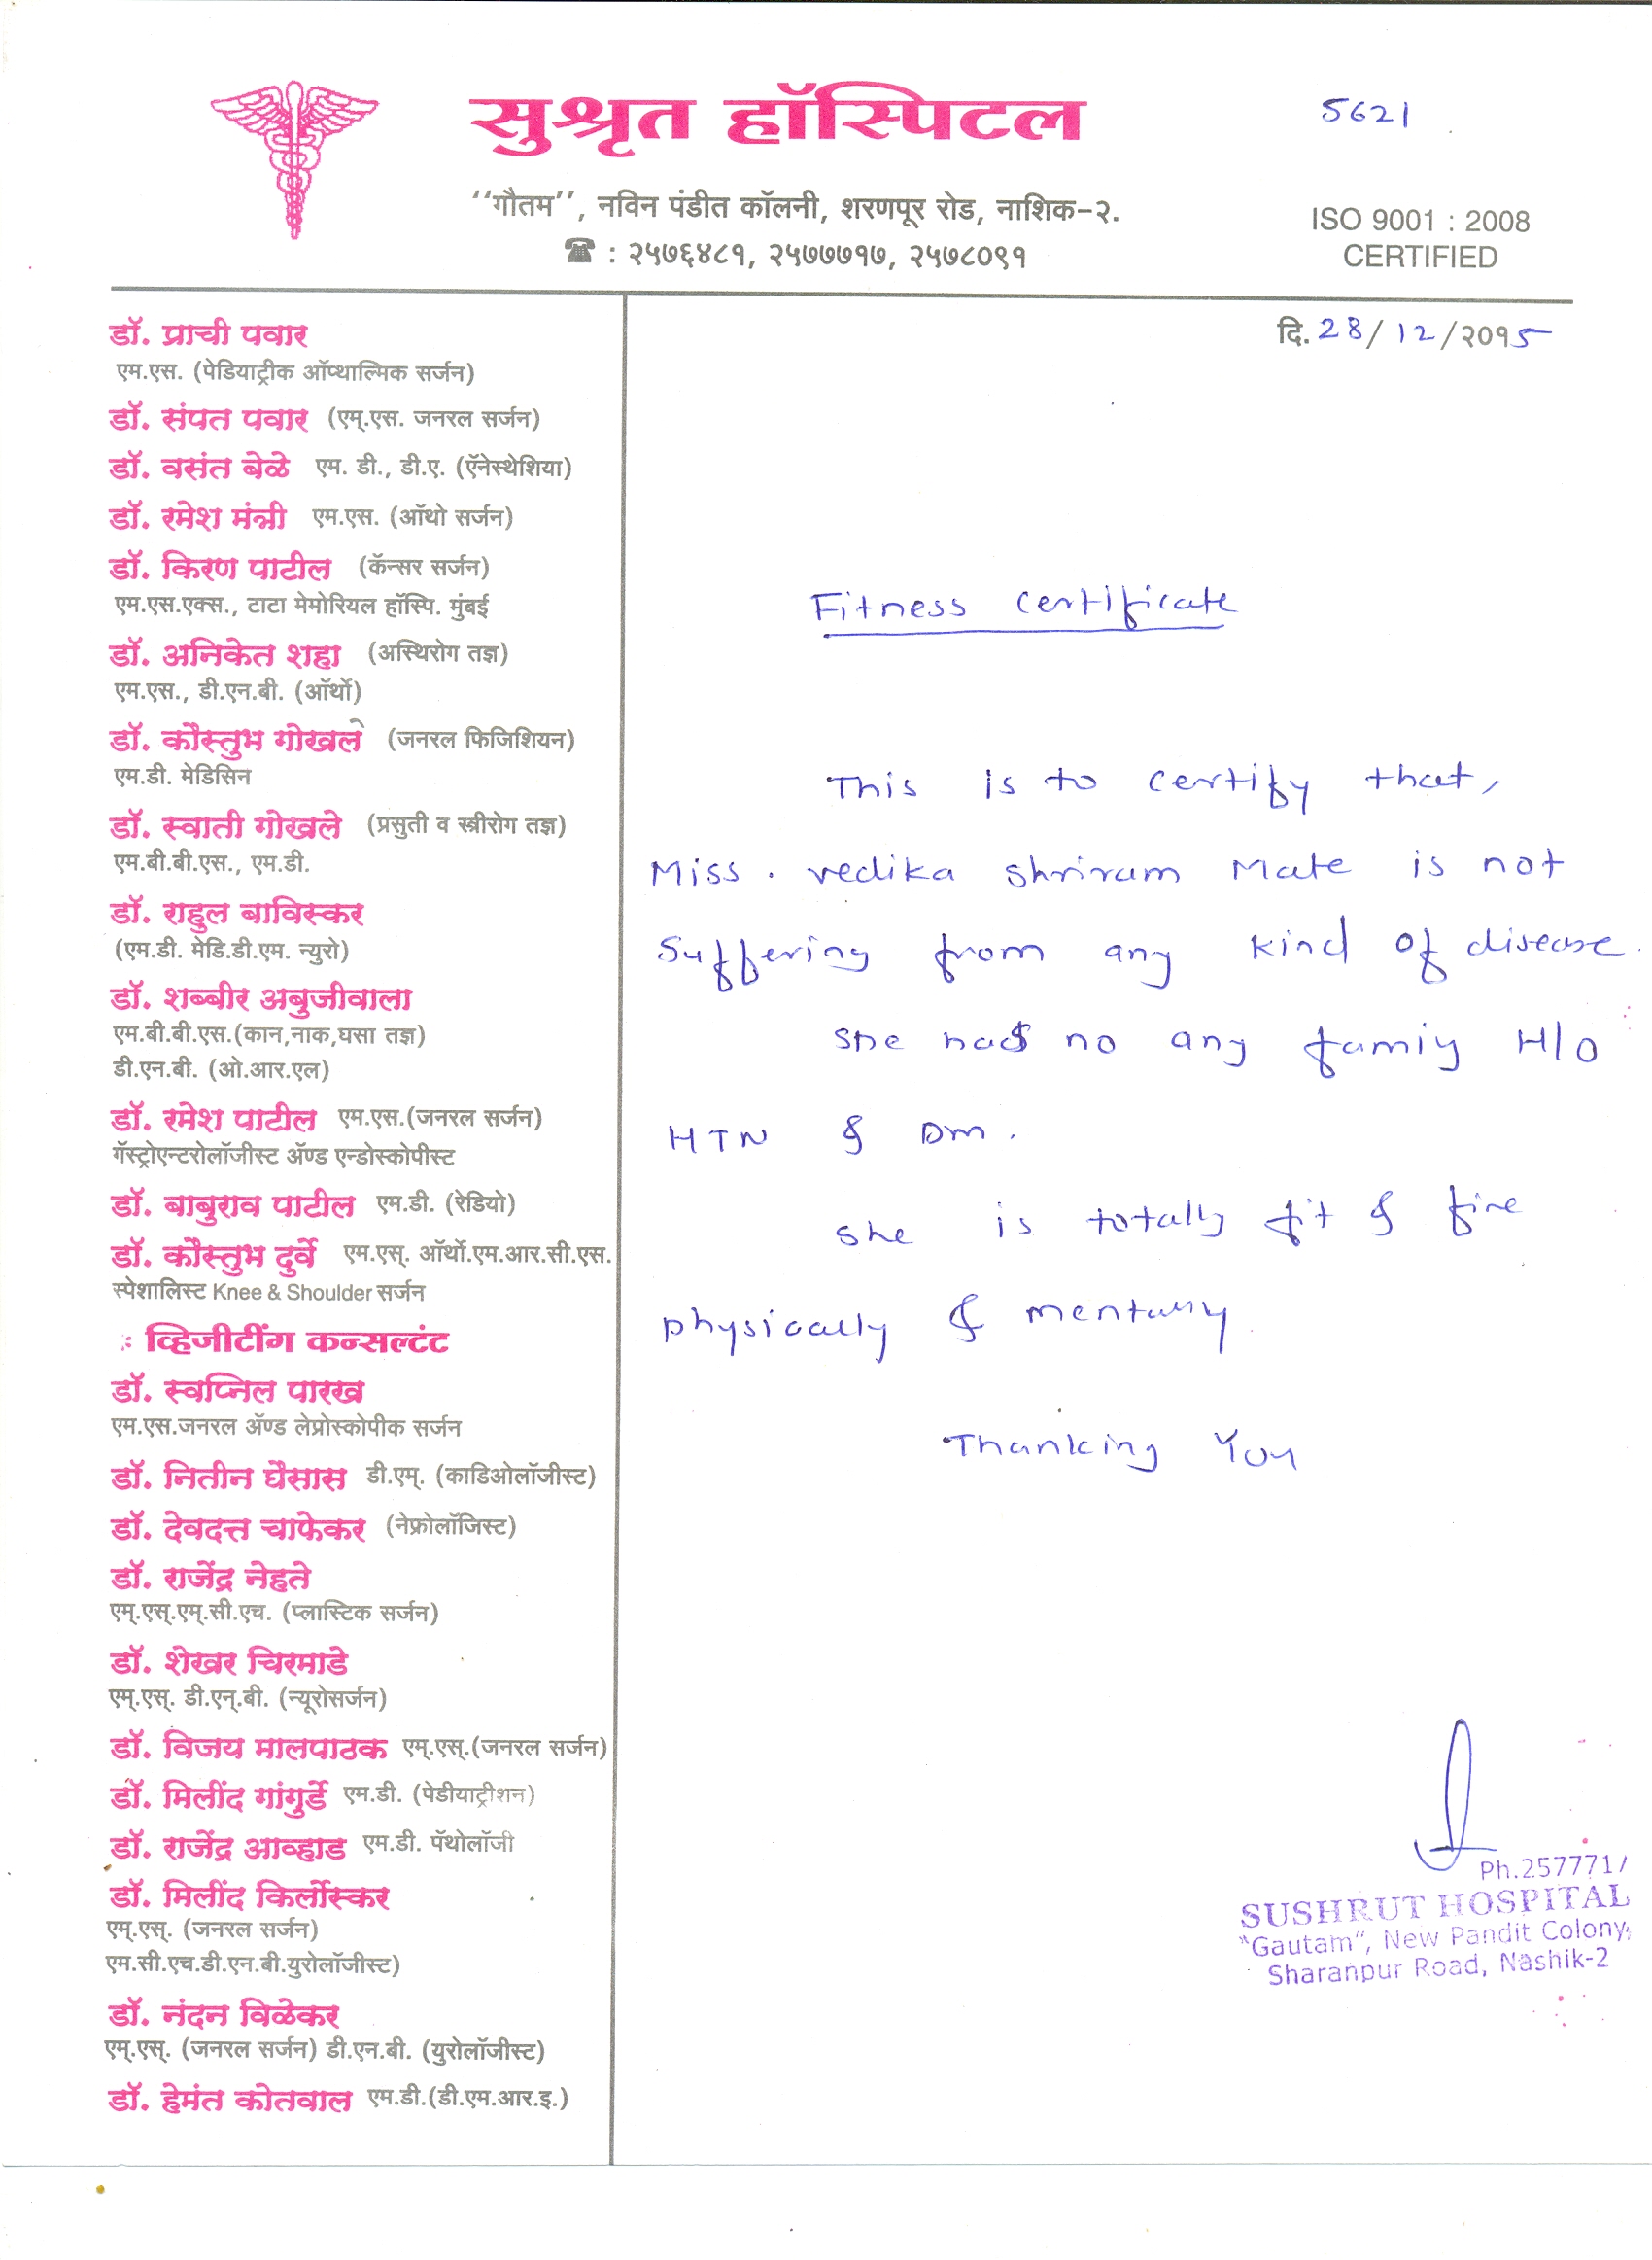 सुश्रृत हॉस्पिटल
5621
‘‘गौतम’’, नविन पंडीत कॉलनी, शरणपूर रोड, नाशिक-२.
☎ : २५७६४८१, २५७७७१७, २५७८०९१
ISO 9001 : 2008
CERTIFIED
डॉ. प्राची पवार
एम.एस. (पेडियाट्रीक ऑप्थाल्मिक सर्जन)
डॉ. संपत पवार (एम्.एस. जनरल सर्जन)
डॉ. वसंत बेळे एम. डी., डी.ए. (ऍनेस्थेशिया)
डॉ. रमेश मंत्री एम.एस. (ऑथो सर्जन)
डॉ. किरण पाटील (कॅन्सर सर्जन)
एम.एस.एक्स., टाटा मेमोरियल हॉस्पि. मुंबई
डॉ. अनिकेत शहा (अस्थिरोग तज्ञ)
एम.एस., डी.एन.बी. (ऑर्थो)
डॉ. कौस्तुभ गोखले (जनरल फिजिशियन)
एम.डी. मेडिसिन
डॉ. स्वाती गोखले (प्रसुती व स्त्रीरोग तज्ञ)
एम.बी.बी.एस., एम.डी.
डॉ. राहुल बाविस्कर
(एम.डी. मेडि.डी.एम. न्युरो)
डॉ. शब्बीर अबुजीवाला
एम.बी.बी.एस.(कान,नाक,घसा तज्ञ)
डी.एन.बी. (ओ.आर.एल)
डॉ. रमेश पाटील एम.एस.(जनरल सर्जन)
गॅस्ट्रोएन्टरोलॉजीस्ट ॲण्ड एन्डोस्कोपीस्ट
डॉ. बाबुराव पाटील एम.डी. (रेडियो)
डॉ. कौस्तुभ दुर्वे एम.एस्. ऑर्थो.एम.आर.सी.एस.
स्पेशालिस्ट Knee & Shoulder सर्जन
: व्हिजीटींग कन्सल्टंट
डॉ. स्वप्निल पारख
एम.एस.जनरल ॲण्ड लेप्रोस्कोपीक सर्जन
डॉ. नितीन घैसास डी.एम्. (कार्डिओलॉजीस्ट)
डॉ. देवदत्त चाफेकर (नेफ्रोलॉजिस्ट)
डॉ. राजेंद्र नेहते
एम्.एस्.एम्.सी.एच. (प्लास्टिक सर्जन)
डॉ. शेखर चिरमाडे
एम्.एस्. डी.एन्.बी. (न्यूरोसर्जन)
डॉ. विजय मालपाठक एम्.एस्.(जनरल सर्जन)
डॉ. मिलींद गांगुर्डे एम.डी. (पेडीयाट्रीशन)
डॉ. राजेंद्र आव्हाड एम.डी. पॅथोलॉजी
डॉ. मिलींद किर्लोस्कर
एम्.एस्. (जनरल सर्जन)
एम.सी.एच.डी.एन.बी.युरोलॉजीस्ट)
डॉ. नंदन विळेकर
एम्.एस्. (जनरल सर्जन) डी.एन.बी. (युरोलॉजीस्ट)
डॉ. हेमंत कोतवाल एम.डी.(डी.एम.आर.इ.)
दि. 28/12/२०१5
Fitness certificate
This is to certify that,
Miss. vedika shriram Mate is not
Suffering from any kind of disease.
She has no any famiy H/O
HTN & DM.
She is totally fit & fine
physically & mentally
Thanking You
Ph.2577717
SUSHRUT HOSPITAL
"Gautam", New Pandit Colony,
Sharanpur Road, Nashik-2